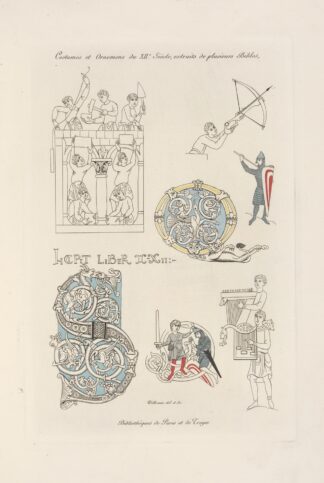 Costumes et Ornemens du XIIe Siècle, extraits de plusieurs Bibles.
LIBER XXII:-
Willemin del. et sc.
Bibliothèques de Paris et de Troyes